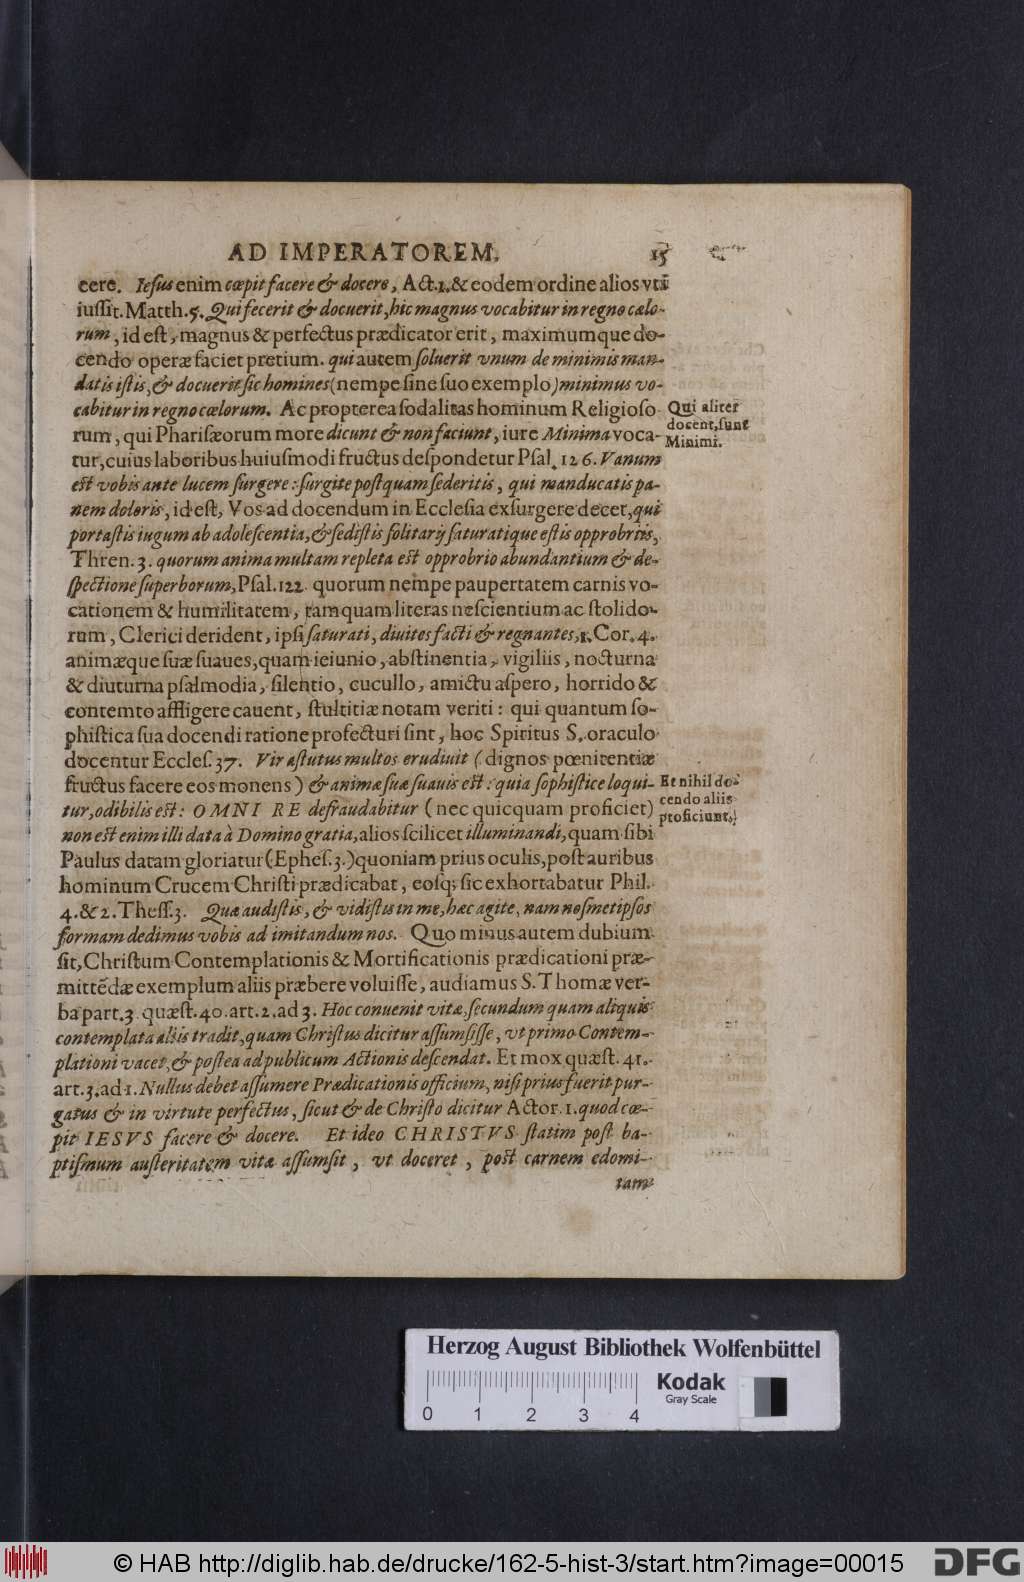 AD IMPERATOREM. 15
cere. Iesus enim cœpit facere & docere, Act.1.& eodem ordine alios vti
iussit. Matth.5. Qui fecerit & docuerit, hic magnus vocabitur in regno cœlo-
rum, id est, magnus & perfectus prædicator erit, maximumque do-
cendo operæ faciet pretium. qui autem soluerit vnum de minimis man-
datis istis, & docuerit sic homines (nempe sine suo exemplo) minimus vo-
cabitur in regno cœlorum. Ac propterea sodalitas hominum Religioso
rum, qui Pharisæorum more dicunt & non faciunt, iure Minima voca-
tur, cuius laboribus huiusmodi fructus despondetur Psal. 126. Vanum
est vobis ante lucem surgere: surgite postquam sederitis, qui manducatis pa-
nem doloris, id est, Vos ad docendum in Ecclesia exsurgere decet, qui
portastis iugum ab adolescentia, & sedistis solitarij saturatique estis opprobriis,
Thren. 3. quorum anima multam repleta est opprobrio abundantium & de-
spectione superborum, Psal.122. quorum nempe paupertatem carnis vo-
cationem & humilitatem, tamquam literas nescientium ac stolido-
rum, Clerici derident, ipsi saturati, diuites facti & regnantes, 1. Cor. 4.
animæque suæ suaues, quam ieiunio, abstinentia, vigiliis, nocturna
& diuturna psalmodia, silentio, cucullo, amictu aspero, horrido &
contemto affligere cauent, stultitiæ notam veriti: qui quantum so-
phistica sua docendi ratione profecturi sint, hoc Spiritus S. oraculo
docentur Eccles. 37. Vir astutus multos erudiuit (dignos pœnitentiæ
fructus facere eos monens) & animæ suæ suauis est: quia sophistice loqui-
tur, odibilis est: OMNI RE defraudabitur (nec quicquam proficiet)
non est enim illi data à Domino gratia, alios scilicet illuminandi, quam sibi
Paulus datam gloriatur (Ephes. 3.) quoniam prius oculis, post auribus
hominum Crucem Christi prædicabat, eosq; sic exhortabatur Phil.
4. & 2. Thess. 3. Quæ audistis, & vidistis in me, hæc agite, nam nosmetipsos
formam dedimus vobis ad imitandum nos. Quo minus autem dubium
sit, Christum Contemplationis & Mortificationis prædicationi præ-
mittẽdæ exemplum aliis præbere voluisse, audiamus S. Thomæ ver-
ba part. 3. quæst. 40. art. 2. ad 3. Hoc conuenit vitæ, secundum quam aliquis
contemplata aliis tradit, quam Christus dicitur assumsisse, vt primo Contem-
plationi vacet, & postea ad publicum Actionis descendat. Et mox quæst. 41.
art. 3. ad 1. Nullus debet assumere Prædicationis officium, nisi prius fuerit pur-
gatus & in virtute perfectus, sicut & de Christo dicitur Actor. 1. quod cœ-
pit IESVS facere & docere. Et ideo CHRISTVS statim post ba-
ptismum austeritatem vitæ assumsit, vt doceret, post carnem edomi-
tam
Qui aliter
docent, sunt
Minimi.
Et nihil do-
cendo aliis
proficiunt.
Herzog August Bibliothek Wolfenbüttel
Kodak
Gray Scale
0 1 2 3 4
© HAB http://diglib.hab.de/drucke/162-5-hist-3/start.htm?image=00015
DFG